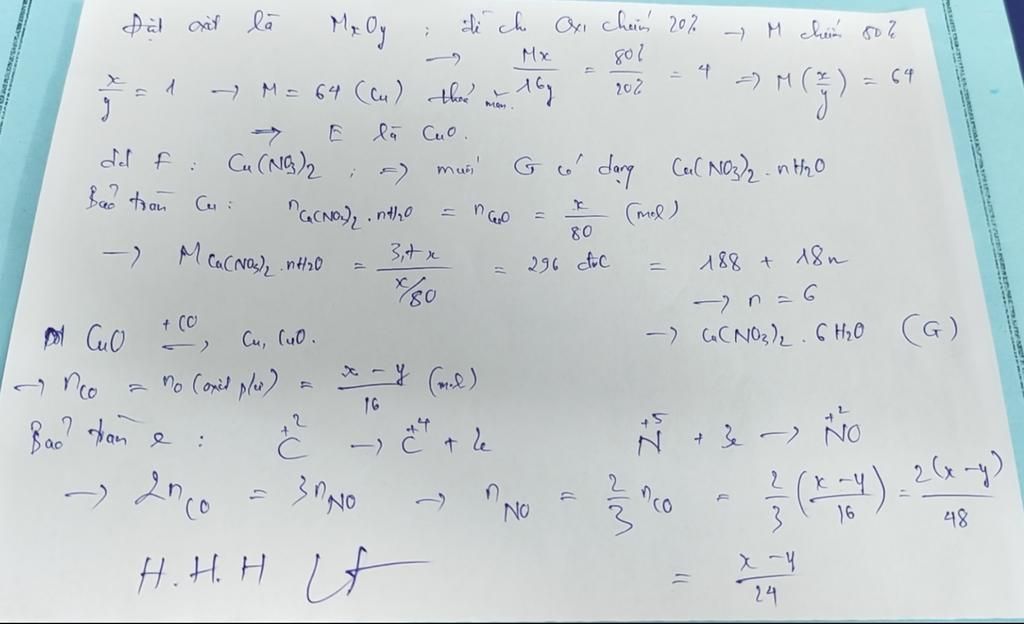 Đặt oxit là MxOy ; đề cho Oxi chiếm 20% → M chiếm 80%
→ Mx/16y = 80%/20% = 4 ⇒ M(x/y) = 64
x/y = 1 → M = 64 (Cu) thoả mãn.
⇒ E là CuO.
dd F : Cu(NO3)2 ; ⇒ muối G có dạng Cu(NO3)2 . nH2O
Bảo toàn Cu : nCu(NO3)2 . nH2O = nCuO = x/80 (mol)
→ M Cu(NO3)2 . nH2O = 3,7x / x/80 = 296 đvC = 188 + 18n
→ n = 6
CuO +CO → Cu, CuO. → Cu(NO3)2 . 6H2O (G)
→ nCO = nO (oxit p/ư) = x - y / 16 (mol)
Bảo toàn e : +2 C → +4 C + 2e +5 N + 3e → +2 NO
→ 2nCO = 3nNO → nNO = 2/3 nCO = 2/3 (x - y / 16) = 2(x - y) / 48
= x - y / 24
H.H.H